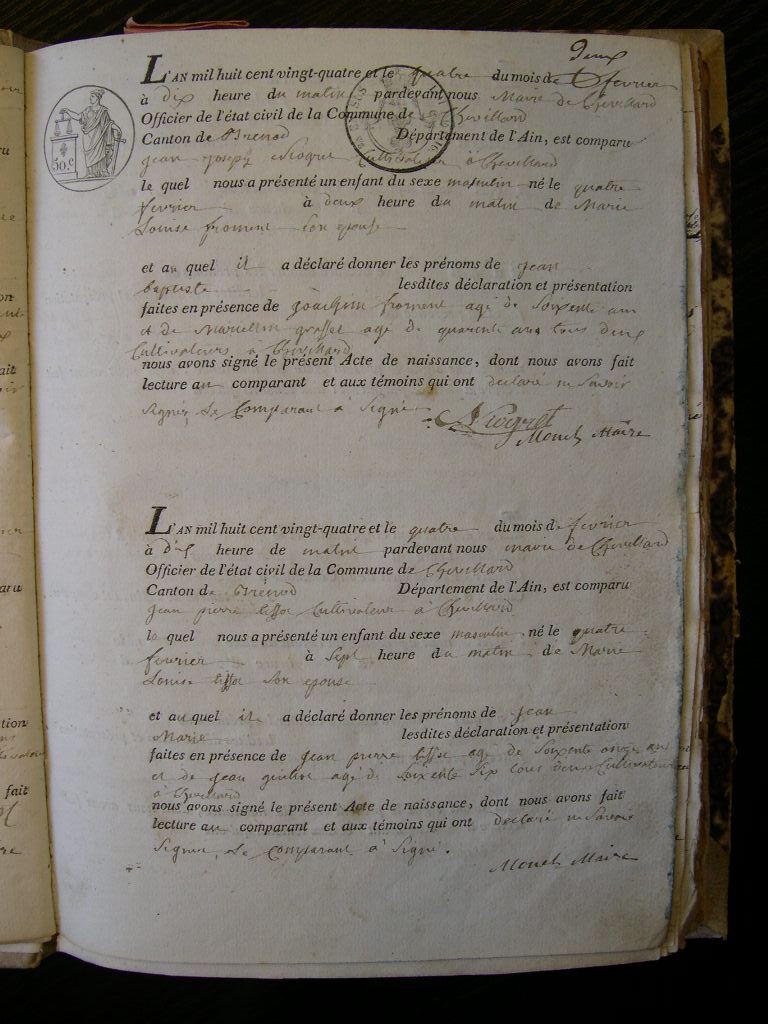 deux
L'AN mil huit cent vingt-quatre et le quatre du mois de fevrier
à dix heure du matin pardevant nous Maire de Chevillard
Officier de l'état civil de la Commune de Chevillard
Canton de Brenod Département de l'Ain, est comparu
jean joseph Cultivateur à Chevillard
le quel nous a présenté un enfant du sexe masculin né le quatre
fevrier à deux heure du matin de Marie
Louise froment son epouse
et au quel il a déclaré donner les prénoms de jean
baptiste lesdites déclaration et présentation
faites en présence de joachim froment agé de Soixente ans
et de Marcellin grosset agé de quarente ans tous deux
Cultivateurs à Chevillard
nous avons signé le présent Acte de naissance, dont nous avons fait
lecture au comparant et aux témoins qui ont declaré ne Savoir
Signer, Le Comparant a Signé
Monet Maire
L'AN mil huit cent vingt-quatre et le quatre du mois de fevrier
à dix heure de matin pardevant nous maire de Chevillard
Officier de l'état civil de la Commune de Chevillard
Canton de Brenod Département de l'Ain, est comparu
jean pierre tissot Cultivateur à Chevillard
le quel nous a présenté un enfant du sexe masculin né le quatre
fevrier à Sept heure du matin de Marie
Louise tissot Son epouse
et au quel il a déclaré donner les prénoms de jean
Marie lesdites déclaration et présentation
faites en présence de jean pierre tissot agé de Soixente onze ans
et de jean agé de Soixente Six tous deux Cultivateurs
à Chevillard
nous avons signé le présent Acte de naissance, dont nous avons fait
lecture au comparant et aux témoins qui ont declaré ne Savoir
Signer, Le comparant a Signé.
Monet Maire
50.c